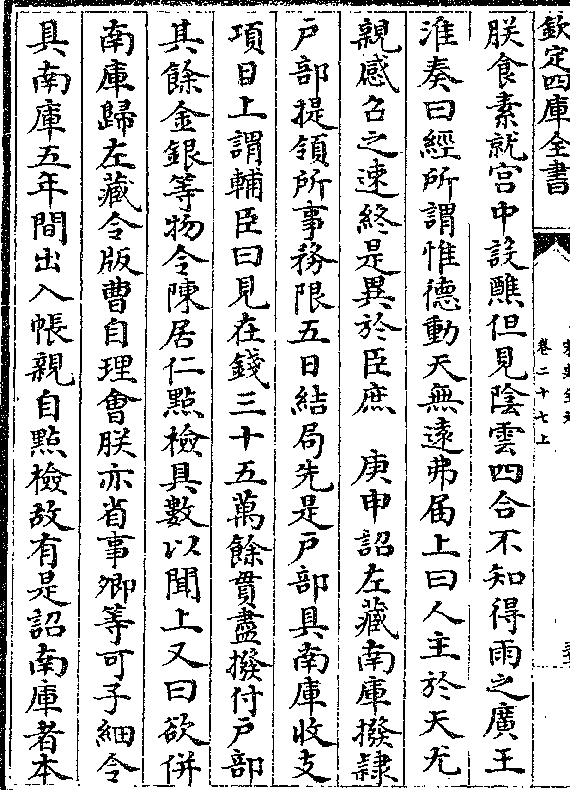 欽定四庫全書
卷二十七上
朕食素就宫中設醮但見陰雲四合不知得雨之廣王
淮奏曰經所謂惟德動天無遠弗届上曰人主於天尤
親感召之速終是異於臣庶　庚申詔左藏南庫撥隷
户部提領所事務限五日結局先是户部具南庫收支
項目上謂輔臣曰見在錢三十五萬餘貫盡撥付户部
其餘金銀等物令陳居仁㸃檢具數以聞上又曰欲併
南庫歸左藏令版曹自理會朕亦省事卿等可子細令
具南庫五年間出入帳親自㸃檢故有是詔南庫者本